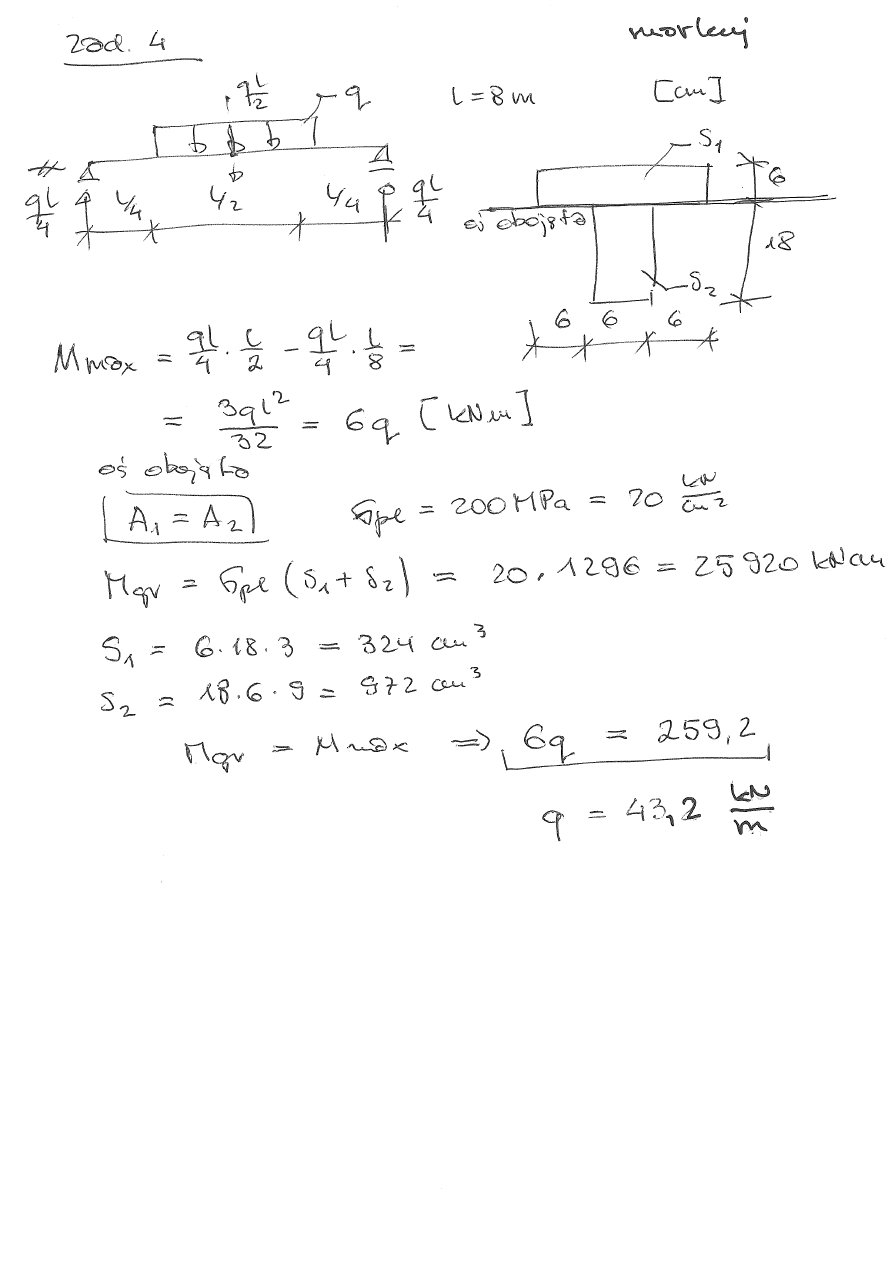 zad. 4
morluj
qL/2
q
L = 8 m
[cm]
S₁
6
qL/4
L/4
L/2
L/4
qL/4
oś obojęta
18
S₂
6 6 6
Mmax = qL/4 · L/2 - qL/4 · L/8 =
= 3qL²/32 = 6q [kNm]
oś obojęta
A₁ = A₂
σpl = 200 MPa = 20 kN/cm²
Mgr = σpl (S₁ + S₂) = 20 · 1296 = 25920 kNcm
S₁ = 6 · 18 · 3 = 324 cm³
S₂ = 18 · 6 · 9 = 972 cm³
Mgr = Mmax ⇒ 6q = 259,2
q = 43,2 kN/m